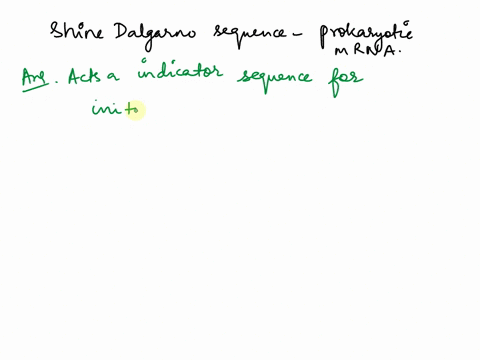 Shine Dalgarno sequence - prokaryotic
mRNA.
Ans. Acts a indicator sequence for
inito